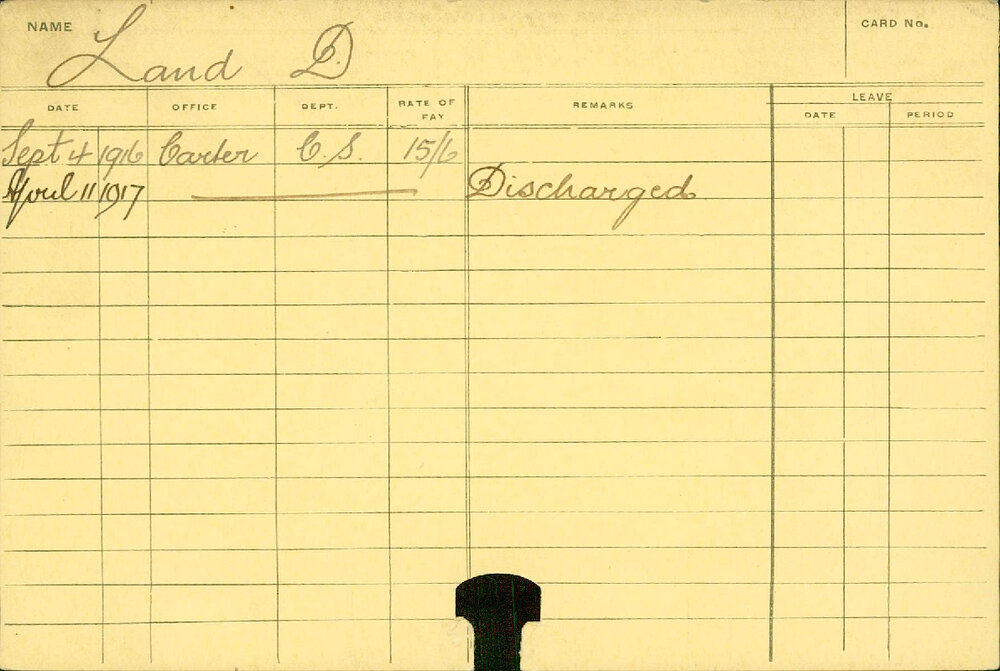 NAME Land D CARD No.
DATE OFFICE DEPT. RATE OF PAY REMARKS LEAVE
DATE PERIOD
Sept 4 1916 Carter C.S. 15/6
April 11 1917 Discharged